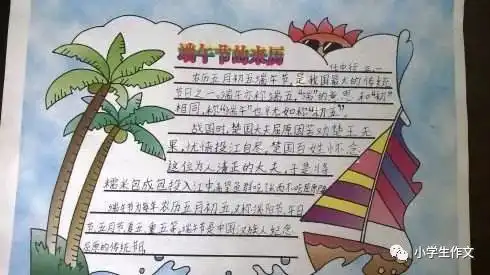 端午节的来历
农历五月初五端午节，是我国最大的传统
节日之一，端午亦称端五，“端”的意思和“初”
相同，称“端午”也早如称“初五”。
战国时，楚国大夫屈原因苦劝楚王无
果，忧愤投江自尽，楚国百姓怀念
这位为人清正的大夫，于是将
糯米包成包投入江中希望鱼虾吃饭而不吃屈原
端午节为每年农历五月初五又称端阳节、午日
节、五月节、五、重五等，端午节是中国汉族人纪念
屈原的传统节日。
小学生作文